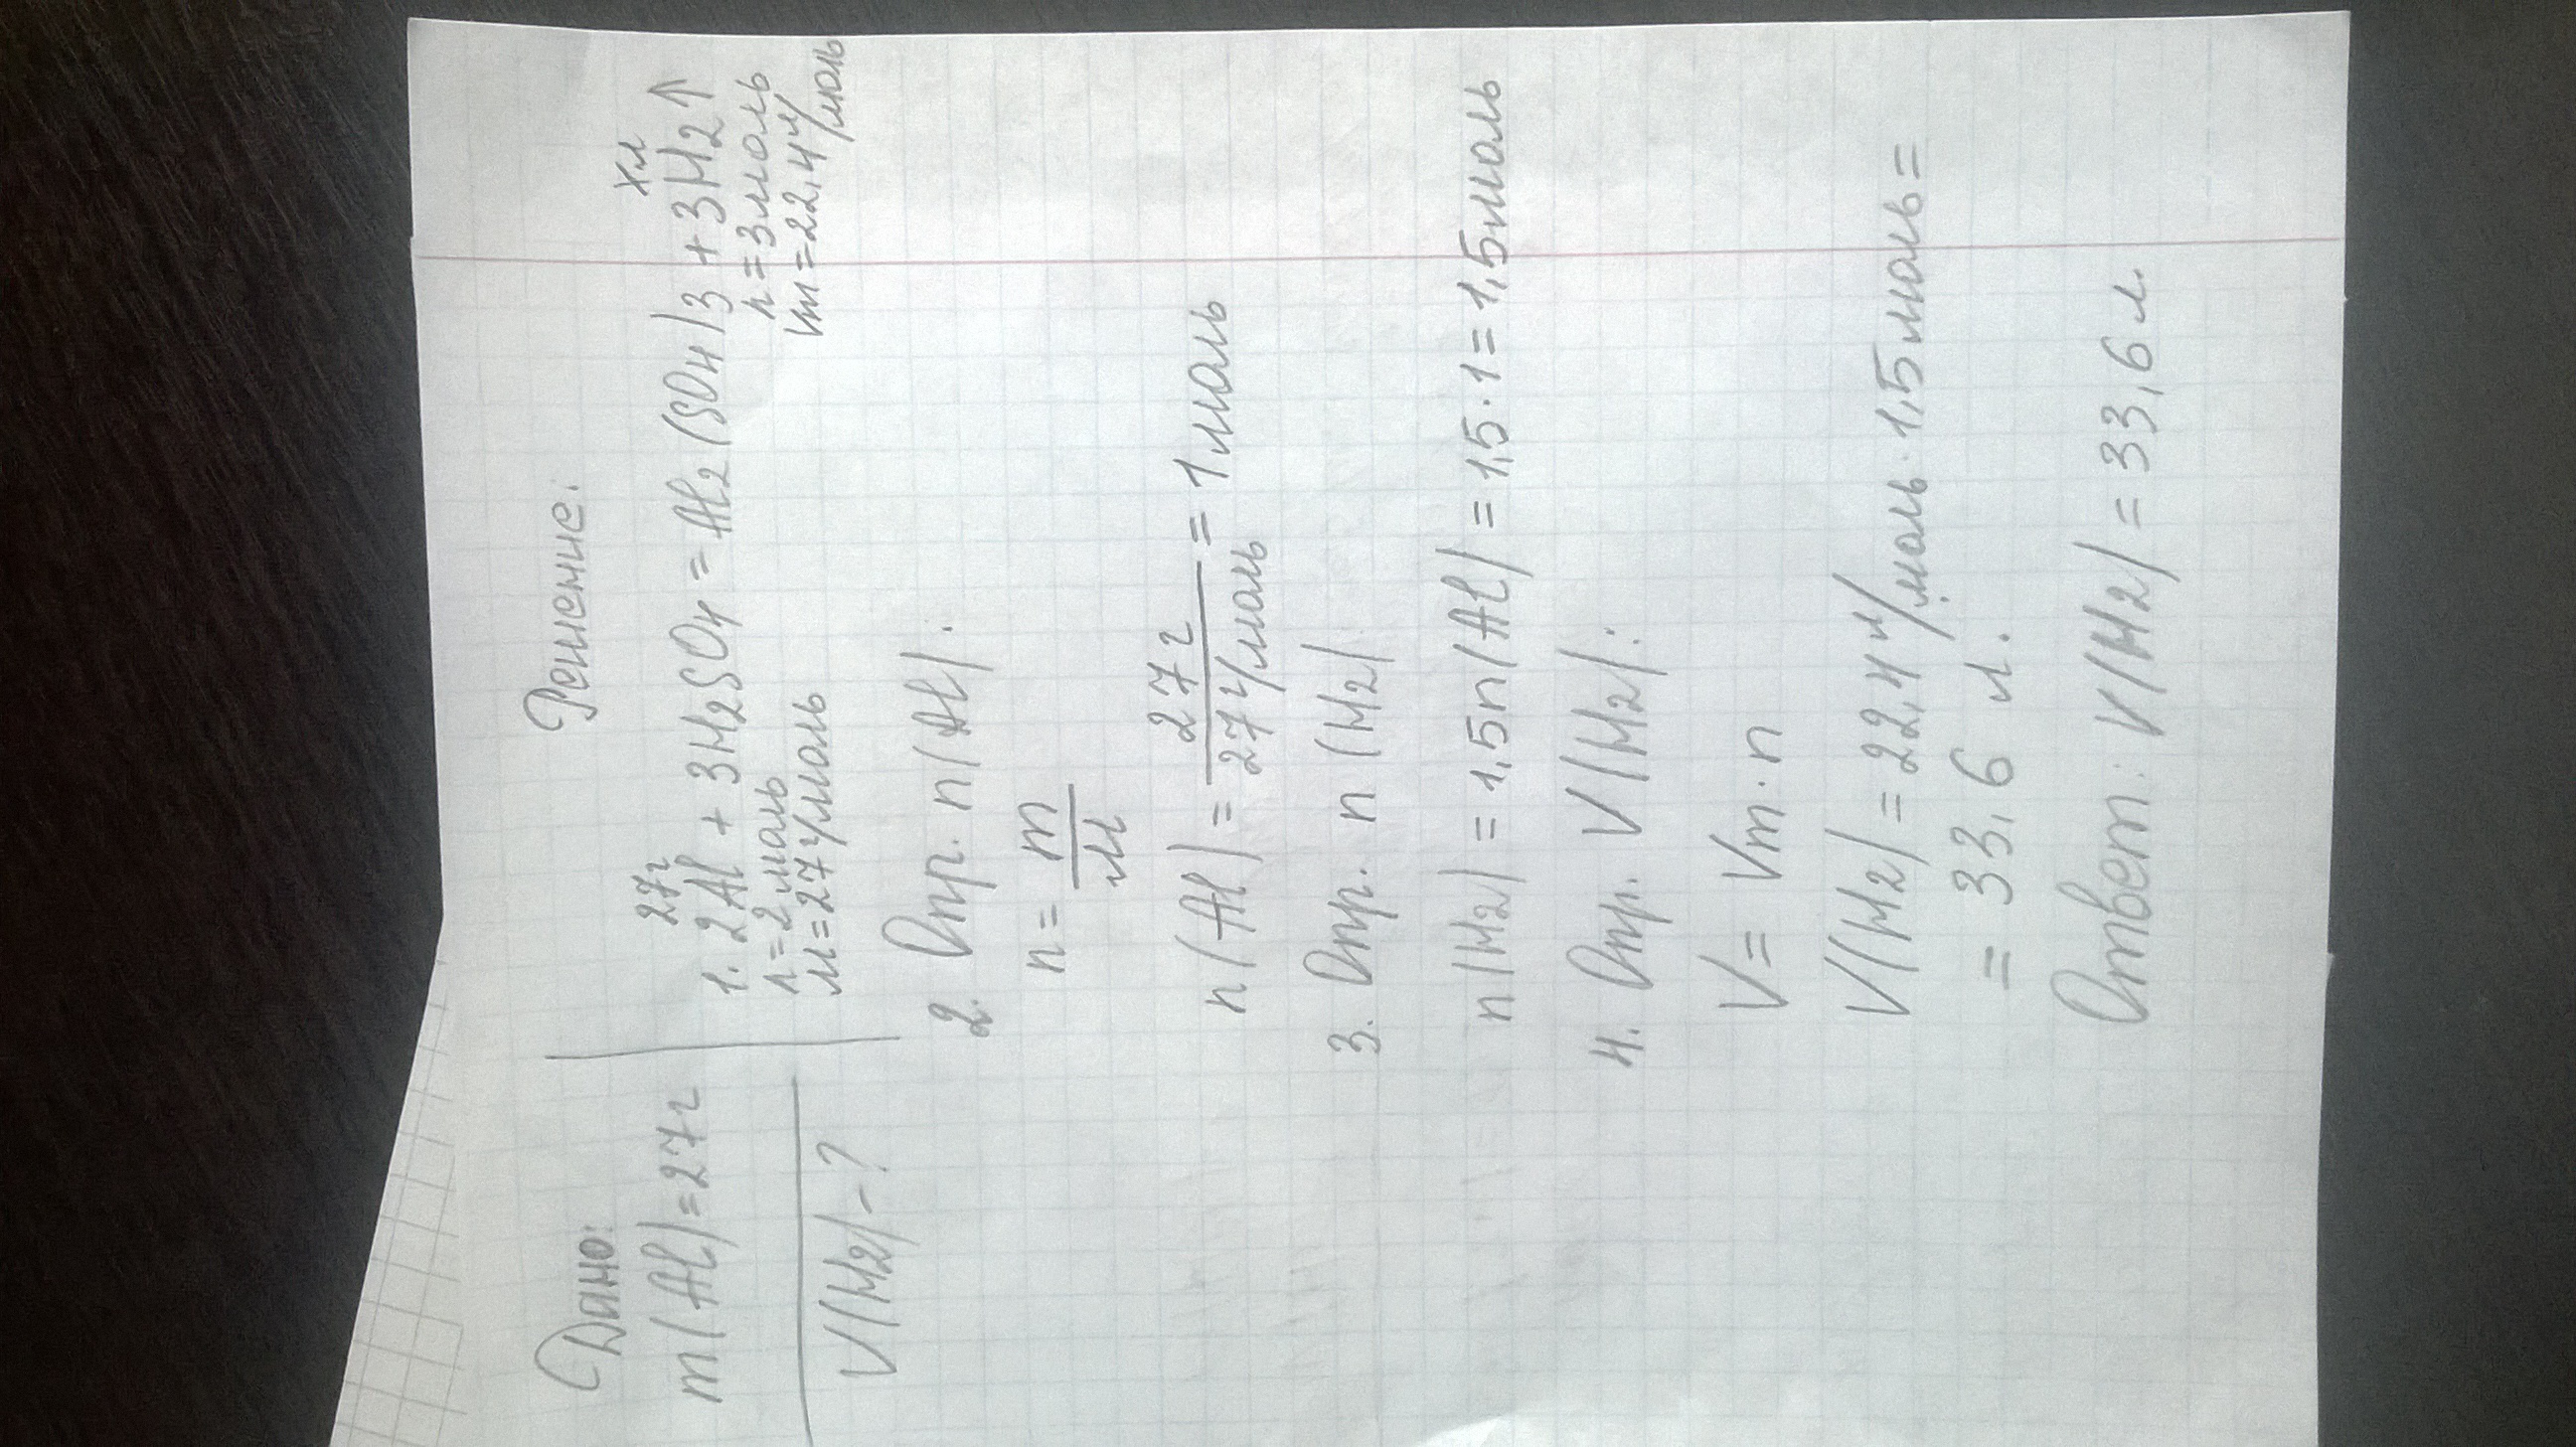 Дано:
m(Al)=27г
V(H2)-?
Решение:
27г хл
1. 2Al + 3H2SO4 = Al2(SO4)3 + 3H2↑
n=2моль n=3моль
M=27г/моль Vm=22,4л/моль
2. Опр. n(Al):
n = m/M
n(Al) = 27г/27г/моль = 1моль
3. Опр. n(H2).
n(H2) = 1,5n(Al) = 1,5·1 = 1,5моль
4. Опр. V(H2):
V = Vm·n
V(H2) = 22,4л/моль·1,5моль =
= 33,6 л.
Ответ: V(H2) = 33,6л.